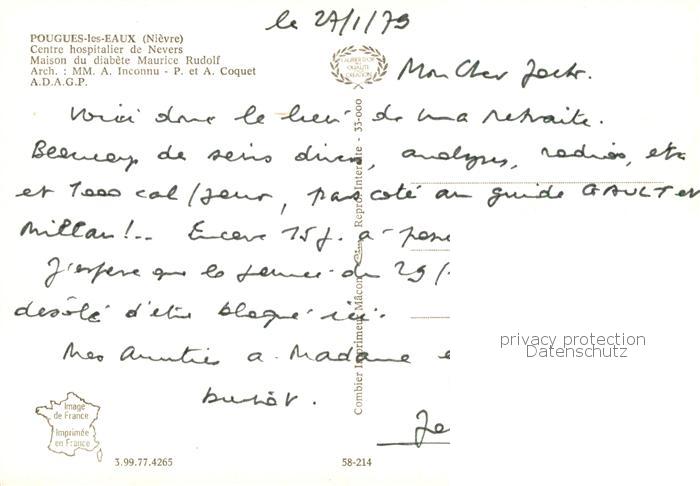 le 27/1/79
POUGUES-les-EAUX (Nièvre)
Centre hospitalier de Nevers
Maison du diabète Maurice Rudolf
Arch. : MM. A. Inconnu - P. et A. Coquet
A.D.A.G.P.
LAURIER D'OR
DE LA
QUALITÉ
CRÉATION
Mon Cher
Voici donc le lieu de ma retraite.
Beaucoup de soins divers, analyses, radios, etc
et 1000 cal/jour, pas coté au guide GAULT et
Millau!.. Encore 15 j. à
J'espère que la du 29
désolé d'être bloqué ici.
Mes Amitiés à Madame e
bientôt.
Je
Combier Imprimeur Mâcon Cim Repro. Interdite - 33-000
privacy protection
Datenschutz
Image
de France
Imprimée
en France
3.99.77.4265
58-214